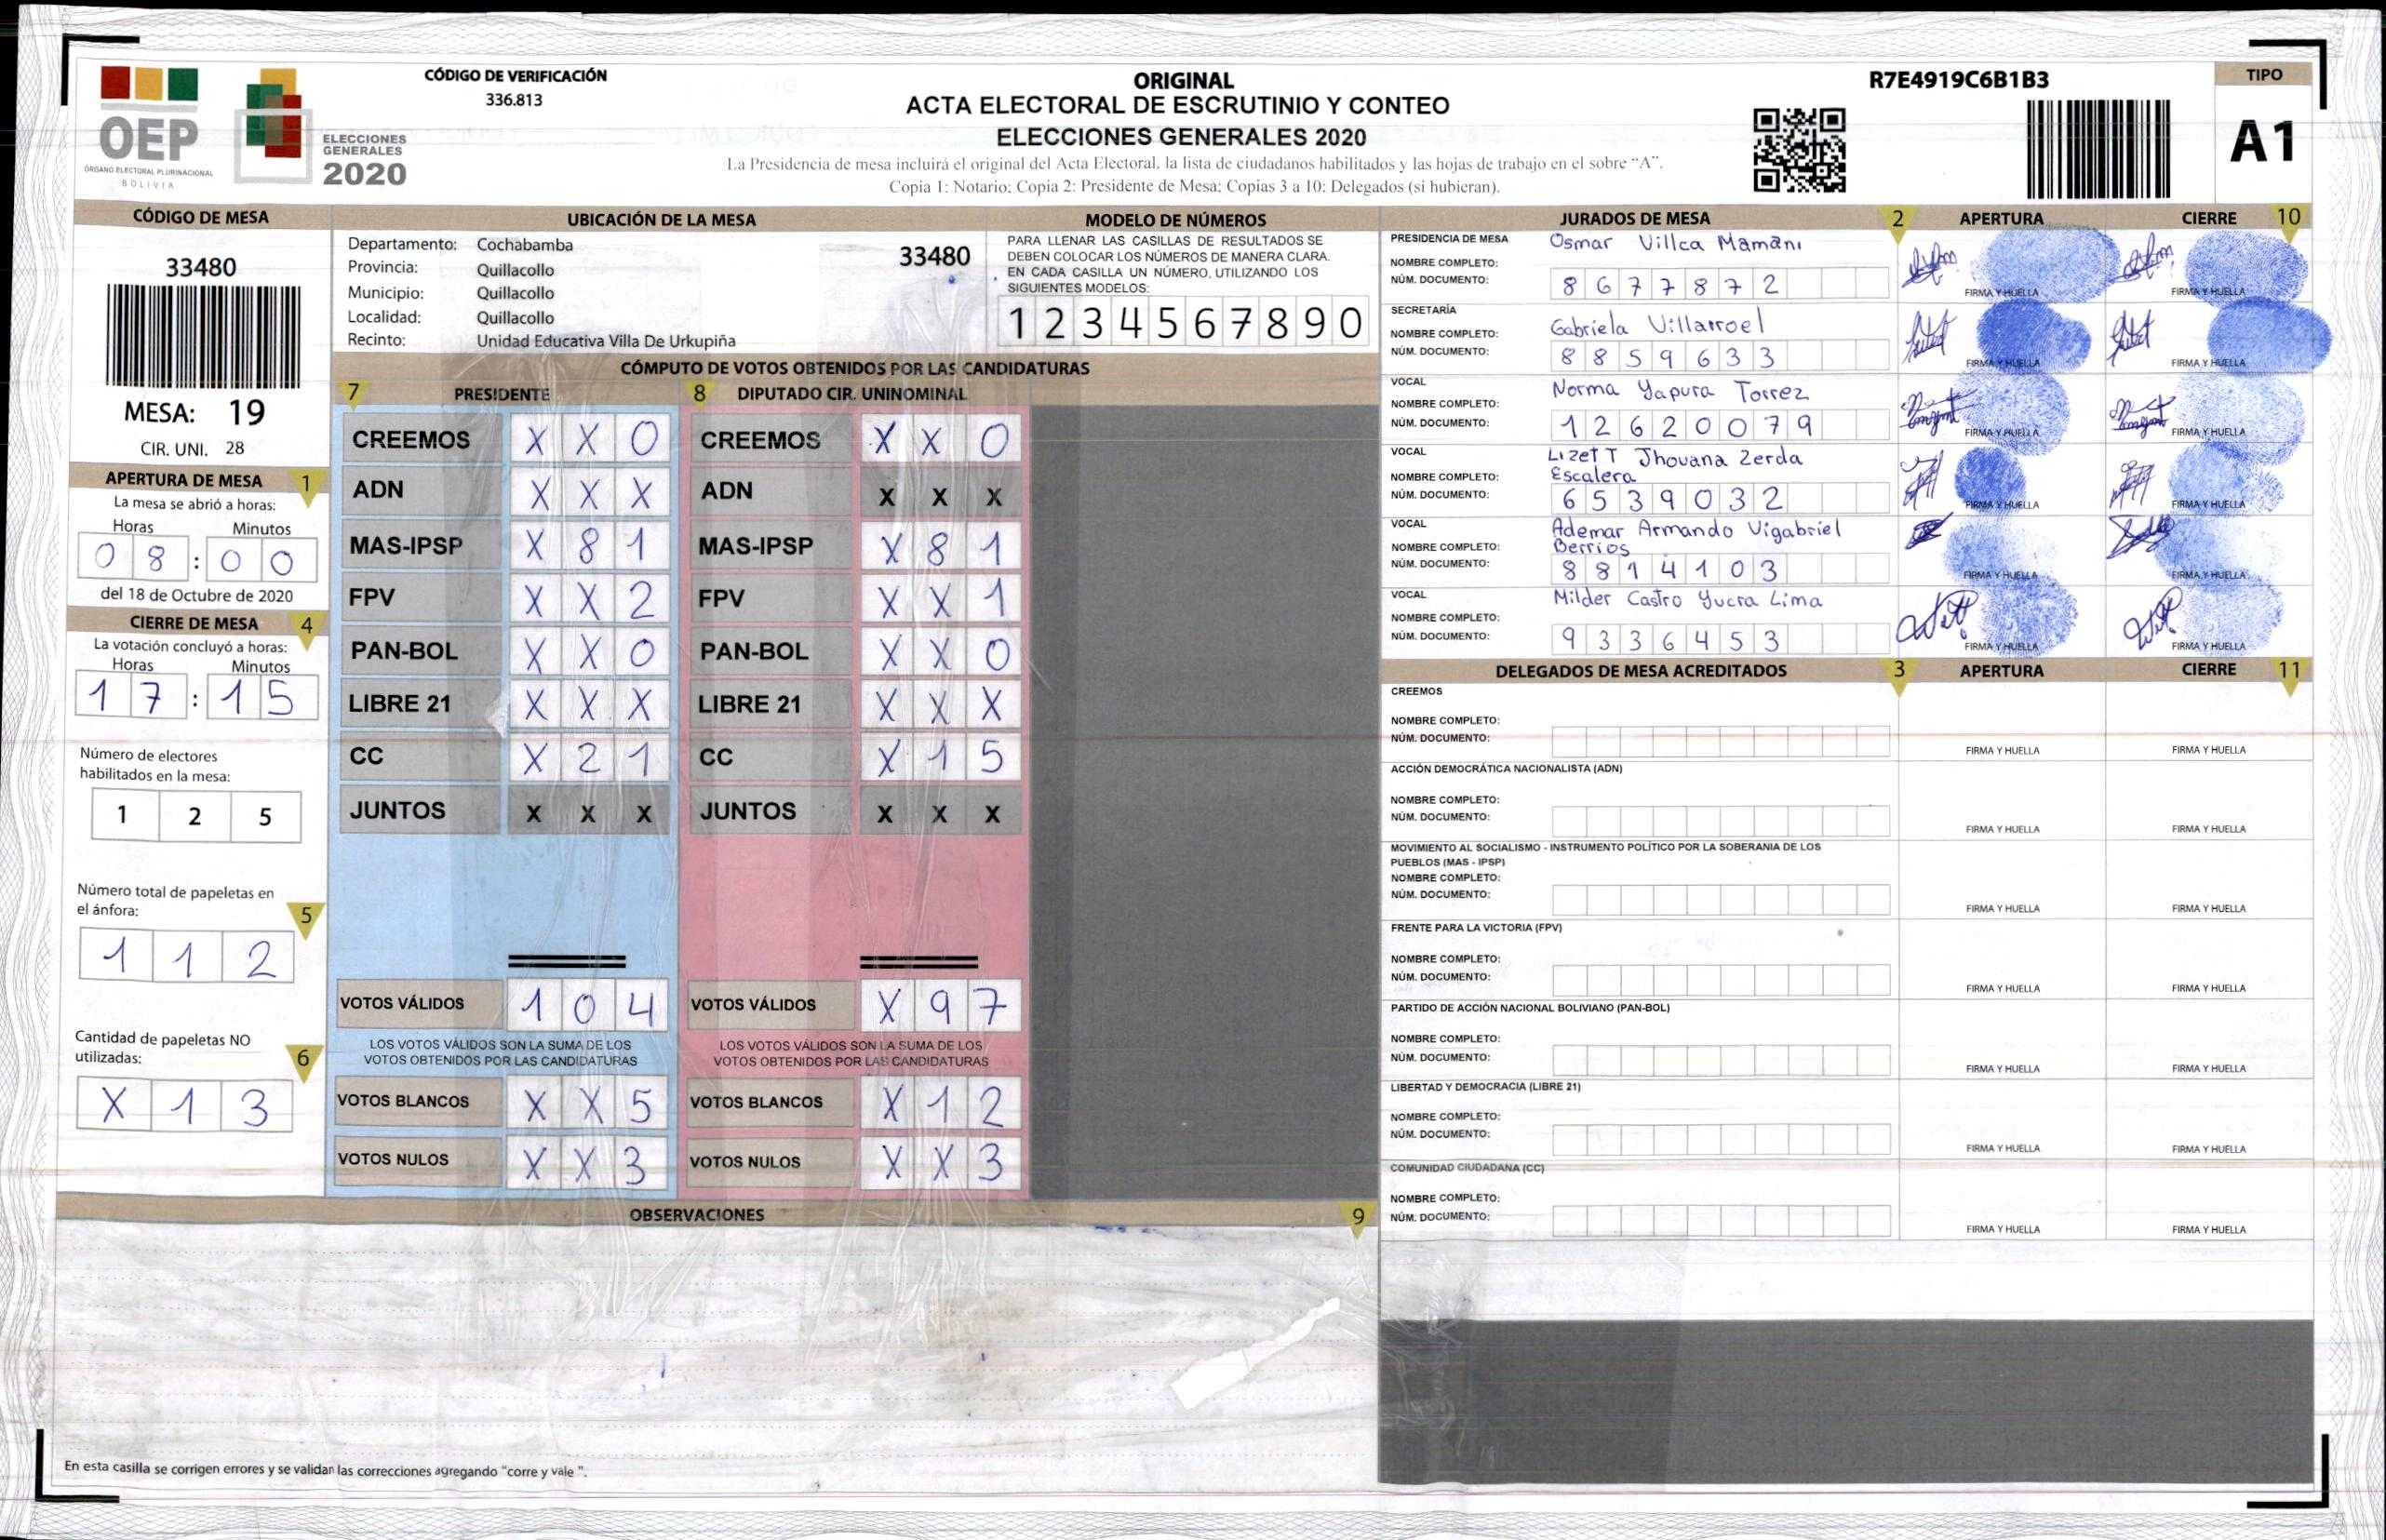 CÓDIGO DE VERIFICACIÓN
336.813
ORIGINAL
ACTA ELECTORAL DE ESCRUTINIO Y CONTEO
ELECCIONES GENERALES 2020
La Presidencia de mesa incluirá el original del Acta Electoral, la lista de ciudadanos habilitados y las hojas de trabajo en el sobre "A".
Copia 1: Notario; Copia 2: Presidente de Mesa; Copias 3 a 10: Delegados (si hubieran).
R7E4919C6B1B3
TIPO
A1
OEP
ÓRGANO ELECTORAL PLURINACIONAL
BOLIVIA
ELECCIONES
GENERALES
2020
CÓDIGO DE MESA
33480
MESA: 19
CIR. UNI. 28
APERTURA DE MESA 1
La mesa se abrió a horas:
Horas Minutos
0 8 : 0 0
del 18 de Octubre de 2020
CIERRE DE MESA 4
La votación concluyó a horas:
Horas Minutos
1 7 : 1 5
Número de electores
habilitados en la mesa:
1 2 5
Número total de papeletas en
el ánfora: 5
1 1 2
Cantidad de papeletas NO
utilizadas: 6
X 1 3
UBICACIÓN DE LA MESA
Departamento: Cochabamba 33480
Provincia: Quillacollo
Municipio: Quillacollo
Localidad: Quillacollo
Recinto: Unidad Educativa Villa De Urkupiña
MODELO DE NÚMEROS
PARA LLENAR LAS CASILLAS DE RESULTADOS SE
DEBEN COLOCAR LOS NÚMEROS DE MANERA CLARA.
EN CADA CASILLA UN NÚMERO, UTILIZANDO LOS
SIGUIENTES MODELOS:
1 2 3 4 5 6 7 8 9 0
CÓMPUTO DE VOTOS OBTENIDOS POR LAS CANDIDATURAS
7 PRESIDENTE 8 DIPUTADO CIR. UNINOMINAL
CREEMOS X X 0 CREEMOS X X 0
ADN X X X ADN X X X
MAS-IPSP X 8 1 MAS-IPSP X 8 1
FPV X X 2 FPV X X 1
PAN-BOL X X 0 PAN-BOL X X 0
LIBRE 21 X X X LIBRE 21 X X X
CC X 2 1 CC X 1 5
JUNTOS X X X JUNTOS X X X
VOTOS VÁLIDOS 1 0 4 VOTOS VÁLIDOS X 9 7
LOS VOTOS VÁLIDOS SON LA SUMA DE LOS LOS VOTOS VÁLIDOS SON LA SUMA DE LOS
VOTOS OBTENIDOS POR LAS CANDIDATURAS VOTOS OBTENIDOS POR LAS CANDIDATURAS
VOTOS BLANCOS X X 5 VOTOS BLANCOS X 1 2
VOTOS NULOS X X 3 VOTOS NULOS X X 3
OBSERVACIONES 9
En esta casilla se corrigen errores y se validan las correcciones agregando "corre y vale ".
JURADOS DE MESA 2 APERTURA CIERRE 10
PRESIDENCIA DE MESA Osmar Villca Mamani
NOMBRE COMPLETO:
NÚM. DOCUMENTO: 8 6 7 7 8 7 2 FIRMA Y HUELLA FIRMA Y HUELLA
SECRETARÍA
NOMBRE COMPLETO: Gabriela Villarroel
NÚM. DOCUMENTO: 8 8 5 9 6 3 3 FIRMA Y HUELLA FIRMA Y HUELLA
VOCAL Norma Yapura Torrez
NOMBRE COMPLETO:
NÚM. DOCUMENTO: 1 2 6 2 0 0 7 9 FIRMA Y HUELLA FIRMA Y HUELLA
VOCAL LizetT Jhovana Zerda
NOMBRE COMPLETO: Escalera
NÚM. DOCUMENTO: 6 5 3 9 0 3 2 FIRMA Y HUELLA FIRMA Y HUELLA
VOCAL Ademar Armando Vigabriel
NOMBRE COMPLETO: Berrios
NÚM. DOCUMENTO: 8 8 1 4 1 0 3 FIRMA Y HUELLA FIRMA Y HUELLA
VOCAL Milder Castro Yucra Lima
NOMBRE COMPLETO:
NÚM. DOCUMENTO: 9 3 3 6 4 5 3 FIRMA Y HUELLA FIRMA Y HUELLA
DELEGADOS DE MESA ACREDITADOS 3 APERTURA CIERRE 11
CREEMOS
NOMBRE COMPLETO:
NÚM. DOCUMENTO: FIRMA Y HUELLA FIRMA Y HUELLA
ACCIÓN DEMOCRÁTICA NACIONALISTA (ADN)
NOMBRE COMPLETO:
NÚM. DOCUMENTO: FIRMA Y HUELLA FIRMA Y HUELLA
MOVIMIENTO AL SOCIALISMO - INSTRUMENTO POLÍTICO POR LA SOBERANIA DE LOS
PUEBLOS (MAS - IPSP)
NOMBRE COMPLETO:
NÚM. DOCUMENTO: FIRMA Y HUELLA FIRMA Y HUELLA
FRENTE PARA LA VICTORIA (FPV)
NOMBRE COMPLETO:
NÚM. DOCUMENTO: FIRMA Y HUELLA FIRMA Y HUELLA
PARTIDO DE ACCIÓN NACIONAL BOLIVIANO (PAN-BOL)
NOMBRE COMPLETO:
NÚM. DOCUMENTO: FIRMA Y HUELLA FIRMA Y HUELLA
LIBERTAD Y DEMOCRACIA (LIBRE 21)
NOMBRE COMPLETO:
NÚM. DOCUMENTO: FIRMA Y HUELLA FIRMA Y HUELLA
COMUNIDAD CIUDADANA (CC)
NOMBRE COMPLETO:
NÚM. DOCUMENTO: FIRMA Y HUELLA FIRMA Y HUELLA